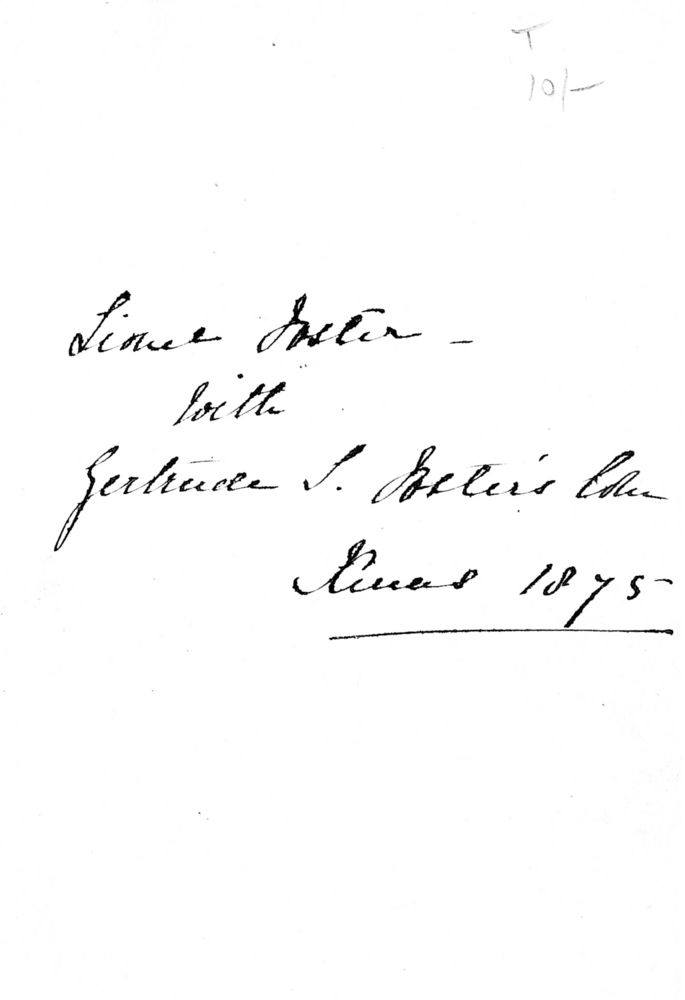 T
10/-
Lionel Foster -
with
Gertrude S. Foster's
Xmas 1875